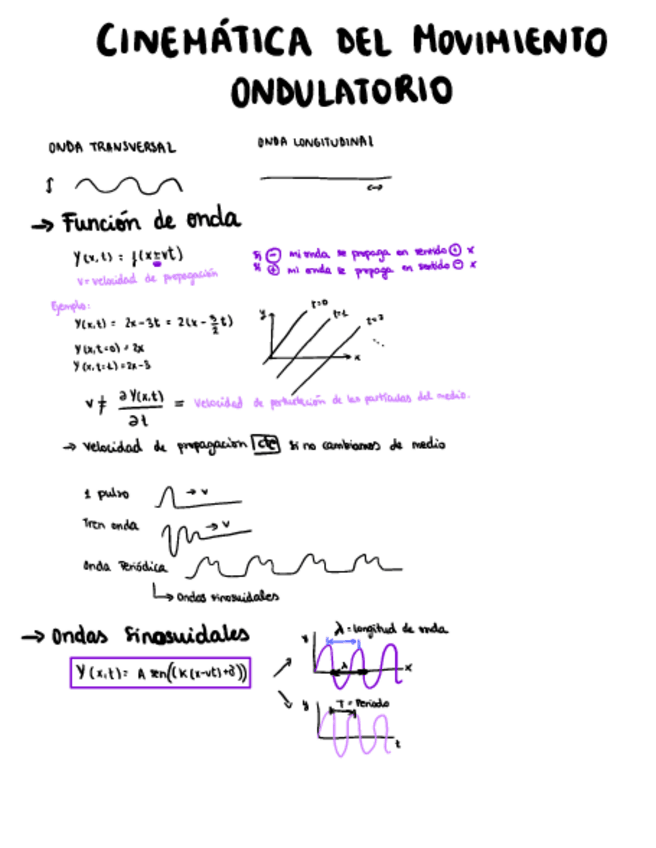 CINEMÁTICA DEL MOVIMIENTO
ONDULATORIO
ONDA TRANSVERSAL
ONDA LONGITUDINAL
→ Función de onda
Y(x,t) = f(x±vt)
Si ⊖ mi onda se propaga en sentido ⊕ x
Si ⊕ mi onda se propaga en sentido ⊖ x
v = velocidad de propagación
Ejemplo:
Y(x,t) = 2x-3t = 2(x - 3/2 t)
Y(x,t=0) = 2x
Y(x,t=1) = 2x-3
y
t=0
t=1
t=2
...
x
v ≠ ∂Y(x,t)/∂t = velocidad de perturbación de las partículas del medio.
→ Velocidad de propagación cte si no cambiamos de medio
1 pulso → v
Tren onda → v
Onda Periódica
↳ Ondas sinosuidales
→ Ondas Sinosuidales
Y(x,t) = A sen((K(x-vt)+δ))
λ = longitud de onda
Y
λ
x
T = Periodo
y
t